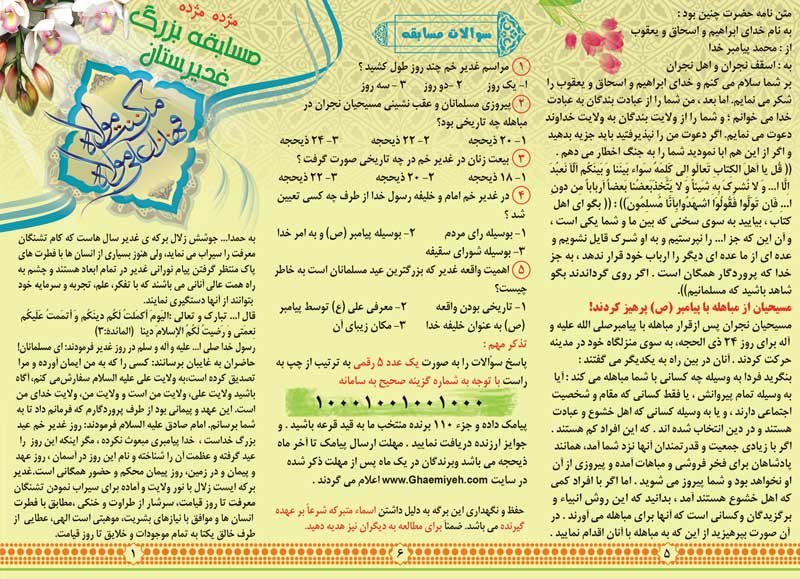 متن نامه حضرت چنین بود :
به نام خدای ابراهیم و اسحاق و یعقوب
از : محمد پیامبر خدا
به : اسقف نجران و اهل نجران
بر شما سلام می کنم و خدای ابراهیم و اسحاق و یعقوب را
شکر می نمایم. اما بعد ، من شما را از عبادت بندگان به عبادت
خدا می خوانم ؛ و شما را از ولایت بندگان به ولایت خداوند
دعوت می نمایم. اگر دعوت من را نپذیرفتید باید جزیه بدهید
و اگر از این هم ابا نمودید شما را به جنگ اخطار می دهم .
(( قُل یا اَهلَ الکِتاب تَعالَو الی کَلِمَهً سواء بَینَنا وَ بَینَکُم اَلّا نَعبُدَ
اِلّا ا... و لا نُشرِکَ بِهِ شَیئاً وَ لا یَتَّخِذَبَعضُنا بَعضاً اَرباباً مِن دونِ
ا... فَاِن تَوَلَّوا فَقُولُوا اشهَدُوابِاَنّا مُسلِمُون)) : (( بگو ای اهل
کتاب ، بیایید به سوی سخنی که بین ما و شما یکی است ،
و آن این که جز ا... را نپرستیم و به او شرک قایل نشویم و
عده ای از ما عده ای دیگر را ارباب خود قرار ندهد ، به جز
خدا که پروردگار همگان است . اگر روی گرداندند بگو
شاهد باشید که مسلمانیم)).
مسیحیان از مباهله با پیامبر (ص) پرهیز کردند!
مسیحیان نجران پس ازقرار مباهله با پیامبرصلی الله علیه و
آله برای روز ۲۴ ذی الحجه، به سوی منزلگاه خود در مدینه
حرکت کردند . آنان در بین راه به یکدیگر می گفتند :
بنگرید فردا به وسیله چه کسانی با شما مباهله می کند : آیا
به وسیله تمام پیروانش ، یا فقط کسانی که مقام و شخصیت
اجتماعی دارند ، و یا به وسیله کسانی که اهل خشوع و عبادت
هستند و در دین انتخاب شده اند . که این افراد کم هستند .
اگر با زیادی جمعیت و قدرتمندان آنها نزد شما آمد، همانند
پادشاهان برای فخر فروشی و مباهات آمده و پیروزی از آن
او نخواهد بود و شما پیروز می شوید . اما اگر با افراد کمی
که اهل خشوع هستند آمد ، بدانید که این روش انبیاء و
برگزیدگان وکسانی است که آنها برای مباهله می آورند . در
آن صورت بپرهیزید از این که به مباهله با آنان اقدام نمایید .
۵
سوالات مسابقه
۱ مراسم غدیر خم چند روز طول کشید ؟
۱- یک روز ۲- دو روز ۳- سه روز
۲ پیروزی مسلمانان و عقب نشینی مسیحیان نجران در
مباهله چه تاریخی بود؟
۱- ۲۰ ذیحجه ۲- ۲۲ ذیحجه ۳- ۲۴ ذیحجه
۳ بیعت زنان در غدیر خم در چه تاریخی صورت گرفت ؟
۱- ۱۸ ذیحجه ۲- ۲۰ ذیحجه ۳- ۲۲ ذیحجه
۴ در غدیر خم امام و خلیفه رسول خدا از طرف چه کسی تعیین
شد ؟
۱- بوسیله رای مردم ۲- بوسیله پیامبر (ص) و به امر خدا
۳- بوسیله شورای سقیفه
۵ اهمیت واقعه غدیر که بزرگترین عید مسلمانان است به خاطر
چیست؟
۱- تاریخی بودن واقعه ۲- معرفی علی (ع) توسط پیامبر
(ص) به عنوان خلیفه خدا ۳- مکان زیبای آن
تذکر مهم :
پاسخ سؤالات را به صورت یک عدد ۵ رقمی به ترتیب از چپ به
راست با توجه به شماره گزینه صحیح به سامانه
۱۰۰۰۱۰۰۱۰۰۱۰۰۰
پیامک داده و جزء ۱۱۰ برنده منتخب ما به قید قرعه باشید . و
جوایز ارزنده دریافت نمایید . مهلت ارسال پیامک تا آخر ماه
ذیحجه می باشد وبرندگان در یک ماه پس از مهلت ذکر شده
در سایت www.Ghaemiyeh.com اعلام می گردند .
حفظ و نگهداری این برگه به دلیل داشتن اسماء متبرکه شرعاً بر عهده
گیرنده می باشد. ضمناً برای مطالعه به دیگران نیز هدیه دهید.
۶
مژده مژده
مسابقه بزرگ
غدیرستان
من کنت مولاه
فهذا علی مولاه
به حمدا... جوشش زلال برکه ی غدیر سال هاست که کام تشنگان
معرفت را سیراب می نماید، ولی هنوز بسیاری از انسان ها با فطرت های
پاک منتظر گرفتن پیام نورانی غدیر در تمام ابعاد هستند و چشم به
راه همت عالی آنانی می باشند که با تفکر، علم، تجربه و سرمایه خود
بتوانند از آنها دستگیری نمایند.
قال ا... تبارک و تعالی :الیَومَ اَکمَلتُ لَکُم دینَکُم وَ اَتمَمتُ عَلَیکُم
نِعمَتی وَ رَضیتُ لَکُمُ الإسلامَ دینا (المائدة:۳)
رسول خدا صلی ا... علیه و آله و سلم در روز غدیر فرمودند: ای مسلمانان!
حاضران به غایبان برسانند: کسی را که به من ایمان آورده و مرا
تصدیق کرده است،به ولایت علی علیه السلام سفارش‌می کنم، آگاه
باشید ولایت علی، ولایت من است و ولایت من، ولایت خدای من
است. این عهد و پیمانی بود از طرف پروردگارم که فرمانم داد تا به
شما برسانم. امام صادق علیه السلام فرمودند: روز غدیر خم عید
بزرگ خداست ، خدا پیامبری مبعوث نکرده ، مگر اینکه این روز را
عید گرفته و عظمت آن را شناخته و نام این روز در آسمان ، روز عهد
و پیمان و در زمین، روز پیمان محکم و حضور همگانی است.غدیر
برکه ایست زلال با نور ولایت و آماده برای سیراب نمودن تشنگان
معرفت تا روز قیامت، سرشار از طراوت و خنکی ,مطابق با فطرت
انسان ها و موافق با نیازهای بشریت، موهبتی است الهی، عطایی از
طرف خالق یکتا به تمام موجودات و خلایق تا روز قیامت.
۱